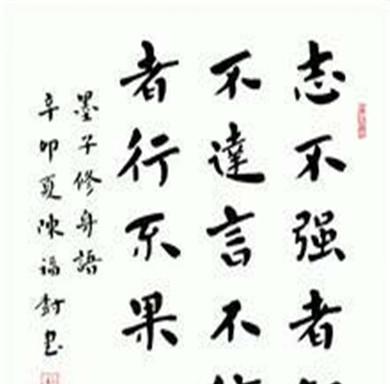 志不强者
不達言不
者行不果
墨子修身語
辛卯夏陳福書